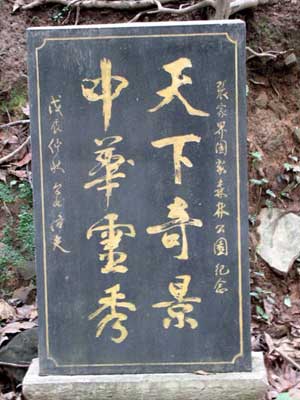 張家界国家森林公園 纪念
天下奇景
中華靈秀
戊辰仲秋